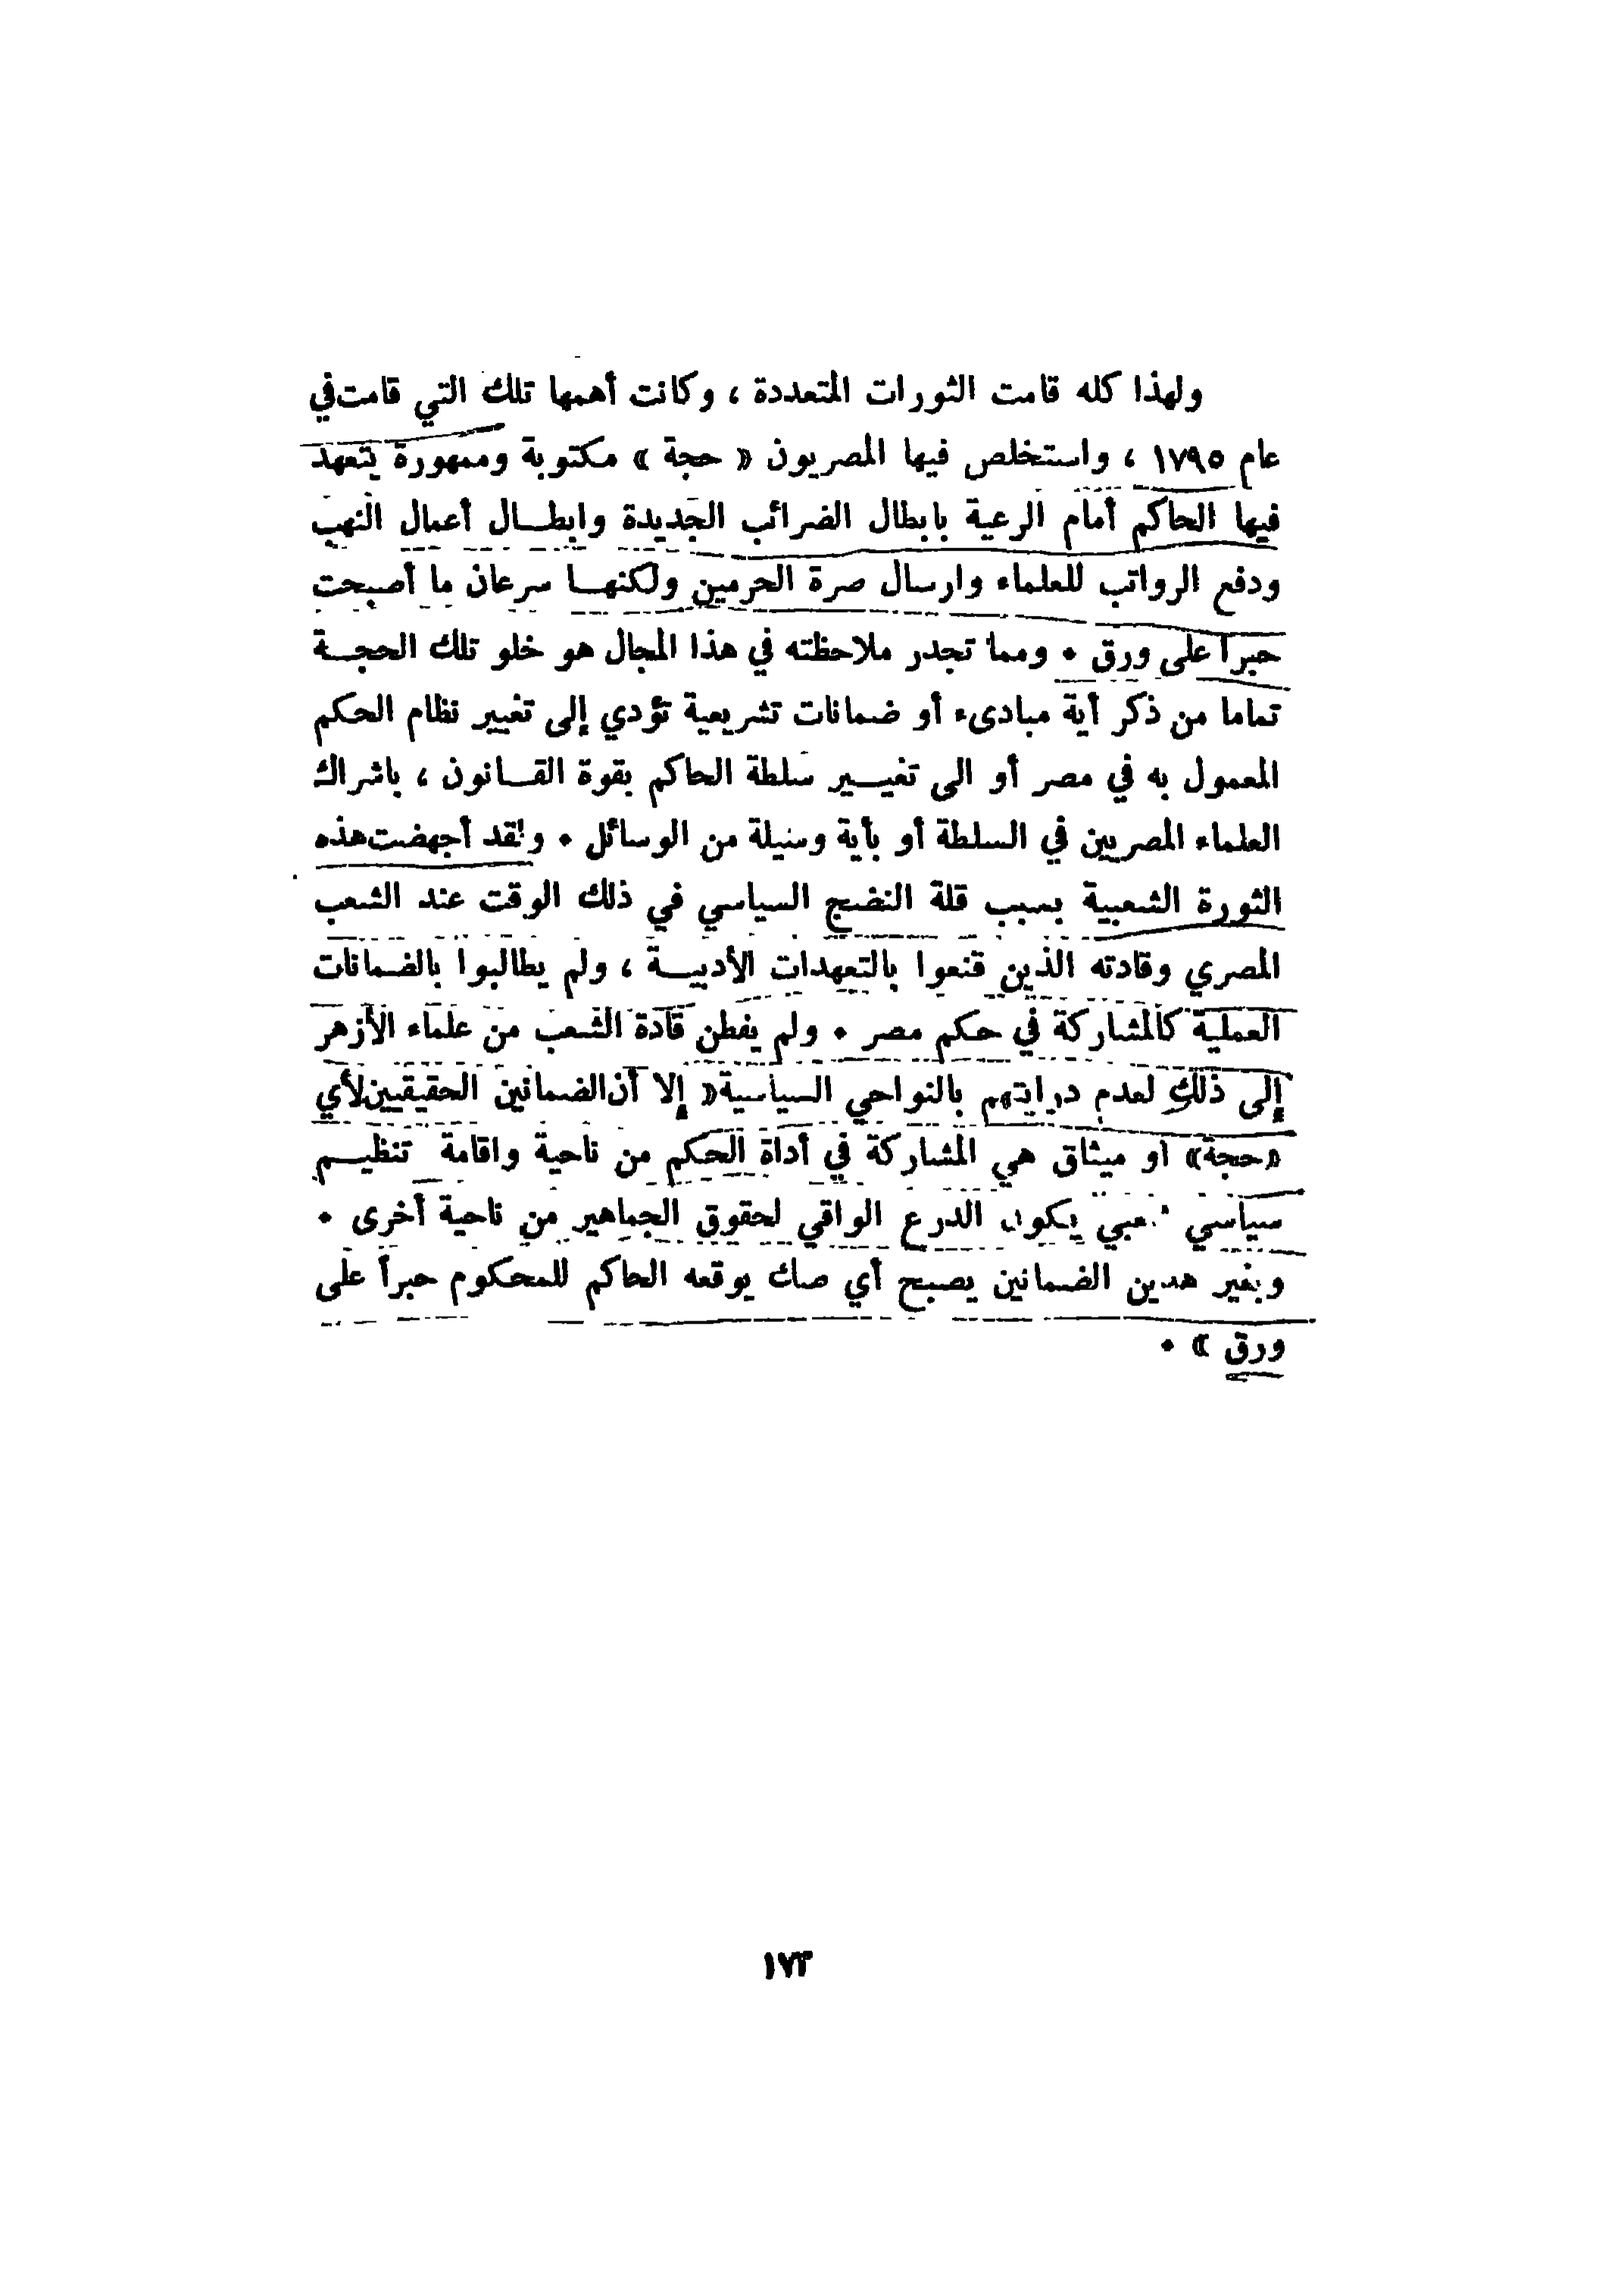 ولهذا كله قامت الثورات المتعددة ، وكانت أهمها تلك التي قامت في
عام ١٧٩٥ ، واستخلص فيها المصريون « حجة » مكتوبة وممهورة يتعهد
فيها الحاكم أمام الرعية بابطال الضرائب الجديدة وابطـــال أعمال النهب
ودفع الرواتب للعلماء وارسال صرة الحرمين ولكنهـــا سرعان ما أصبحت
حبراً على ورق • ومما تجدر ملاحظته في هذا المجال هو خلو تلك الحجـــة
تماما من ذكر أية مبادىء أو ضمانات تشريعية تؤدي إلى تغيير نظام الحكم
المعمول به في مصر أو الى تغيـــير سلطة الحاكم بقوة القـــانون ، باشراك
العلماء المصريين في السلطة أو بأية وسيلة من الوسائل • ولقد أجهضت هذه
الثورة الشعبية بسبب قلة النضج السياسي في ذلك الوقت عند الشعب
المصري وقادته الذين قنعوا بالتعهدات الأدبيـــة ، ولم يطالبوا بالضمانات
العملية كالمشاركة في حكم مصر • ولم يفطن قادة الشعب من علماء الأزهر
إلى ذلك لعدم درايتهم بالنواحي السياسية« إلا أن الضمانين الحقيقيين لأي
«حجة» أو ميثاق هي المشاركة في أداة الحكم من ناحية واقامة تنظيـــم
سياسي شعبي يكون الدرع الواقي لحقوق الجماهير من ناحية أخرى •
وبغير هدين الضمانين يصبح أي صك يوقعه الحاكم للمحكوم حبراً على
ورق » •
١٧٣